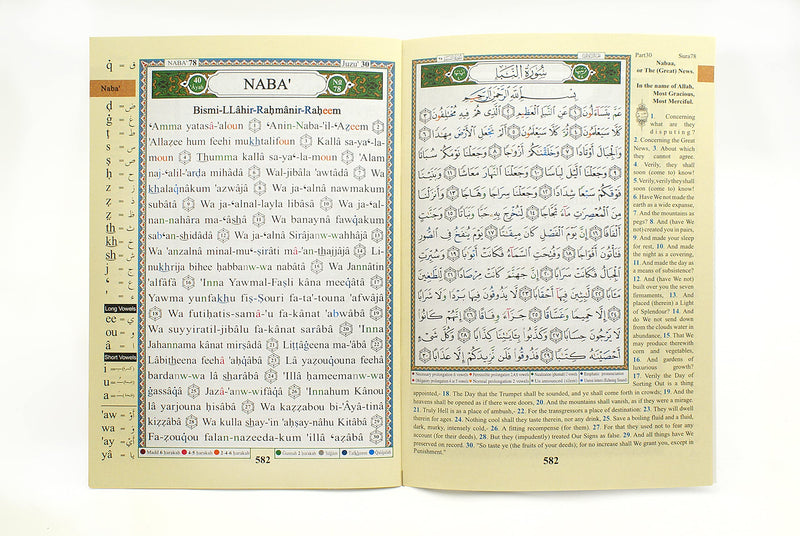 q̇ = ق
Naba'
ḍ = ض
ġ = غ
ṭ = ط
ṣ = ص
ḥ = ح
ẓ = ظ
th = ث
kh = خ
sh = ش
Long Vowels
ee =
ou =
â =
Short Vowels
i
u
a
'aw =
wa = و
'ay =
yâ = يا
NABA' 78
Juzu' 30
40
Ayah
NABA'
No
78
Bismi-LLâhir-Raḥmânir-Raḥeem
‘Amma yatasâ-'aloun 1 ‘Anin-Naba-'il-‘Aẓeem 2
'Allaẓee hum feehi mukhtalifoun 3 Kallâ sa-ya‘-la-
moun 4 Thumma kallâ sa-ya‘-la-moun 5 'Alam
naj-‘alil-'arḍa mihâdâ 6 Wal-jibâla 'awtâdâ 7 Wa
khalaqnâkum 'azwâjâ 8 Wa ja-‘alnâ nawmakum
subâtâ 9 Wa ja-‘alnal-layla libâsâ 10 Wa ja-‘al-
nan-nahâra ma-‘âshâ 11 Wa banaynâ fawqakum
sab‘an-shidâdâ 12 Wa ja-‘alnâ Sirâjan-wahhâjâ 13
Wa 'anzalnâ minal-mu‘-ṣirâti mâ-'an-thajjâjâ 14 Li-
nukhrija bihee ḥabban-wa nabâtâ 15 Wa Jannâtin
'alfâfâ 16 'Inna Yawmal-Faṣli kâna meeqâtâ 17
Yawma yunfakhu fiṣ-Ṣouri fa-ta'-touna 'afwâjâ
18 Wa futiḥatis-samâ-'u fa-kânat 'abwâbâ 19
Wa suyyiratil-jibâlu fa-kânat sarâbâ 20 'Inna
Jahannama kânat mirṣâdâ 21 Liṭṭâġeena ma-'âbâ 22
Lâbitheena feehâ 'aḥqâbâ 23 Lâ yaẓouqouna feehâ
bardan-wa lâ sharâbâ 24 'Illâ ḥameeman-wa
ġassâqâ 25 Jazâ-'an-wifâqâ 26 'Innahum Kânou
lâ yarjouna ḥisâbâ 27 Wa kaẓẓabou bi-'Âyâ-tinâ
kiẓẓâbâ 28 Wa kulla shay-'in 'aḥṣay-nâhu Kitâbâ 29
Fa-ẓouqou falan-nazeeda-kum 'illâ ‘aẓâbâ 30
Madd 6 ḥarakah 4-5 ḥarakah 2-4-6 ḥarakah Ġunnah 2 ḥarakah 'Idġâm Tafkheem Qalqalah
582
سورة النبأ
بسم الله الرحمن الرحيم
عَمَّ يَتَسَاءَلُونَ ١ عَنِ النَّبَإِ الْعَظِيمِ ٢ الَّذِي هُمْ فِيهِ مُخْتَلِفُونَ ٣
كَلَّا سَيَعْلَمُونَ ٤ ثُمَّ كَلَّا سَيَعْلَمُونَ ٥ أَلَمْ نَجْعَلِ الْأَرْضَ مِهَادًا ٦
وَالْجِبَالَ أَوْتَادًا ٧ وَخَلَقْنَاكُمْ أَزْوَاجًا ٨ وَجَعَلْنَا نَوْمَكُمْ سُبَاتًا
٩ وَجَعَلْنَا اللَّيْلَ لِبَاسًا ١٠ وَجَعَلْنَا النَّهَارَ مَعَاشًا ١١ وَبَنَيْنَا
فَوْقَكُمْ سَبْعًا شِدَادًا ١٢ وَجَعَلْنَا سِرَاجًا وَهَّاجًا ١٣ وَأَنزَلْنَا
مِنَ الْمُعْصِرَاتِ مَاءً ثَجَّاجًا ١٤ لِّنُخْرِجَ بِهِ حَبًّا وَنَبَاتًا ١٥ وَجَنَّاتٍ
أَلْفَافًا ١٦ إِنَّ يَوْمَ الْفَصْلِ كَانَ مِيقَاتًا ١٧ يَوْمَ يُنفَخُ فِي الصُّورِ
فَتَأْتُونَ أَفْوَاجًا ١٨ وَفُتِحَتِ السَّمَاءُ فَكَانَتْ أَبْوَابًا ١٩ وَسُيِّرَتِ
الْجِبَالُ فَكَانَتْ سَرَابًا ٢٠ إِنَّ جَهَنَّمَ كَانَتْ مِرْصَادًا ٢١ لِّلطَّاغِينَ
مَآبًا ٢٢ لَّابِثِينَ فِيهَا أَحْقَابًا ٢٣ لَّا يَذُوقُونَ فِيهَا بَرْدًا وَلَا شَرَابًا
٢٤ إِلَّا حَمِيمًا وَغَسَّاقًا ٢٥ جَزَاءً وِفَاقًا ٢٦ إِنَّهُمْ كَانُوا
لَا يَرْجُونَ حِسَابًا ٢٧ وَكَذَّبُوا بِآيَاتِنَا كِذَّابًا ٢٨ وَكُلَّ شَيْءٍ
أَحْصَيْنَاهُ كِتَابًا ٢٩ فَذُوقُوا فَلَن نَّزِيدَكُمْ إِلَّا عَذَابًا ٣٠
Part30 Sura78
Nabaa,
or The (Great) News.
In the name of Allah,
Most Gracious,
Most Merciful.
1. Concerning
what are they
disputing?
2. Concerning the Great
News, 3. About which
they cannot agree.
4. Verily, they shall
soon (come to) know!
5. Verily, verily they shall
soon (come to) know!
6. Have We not made the
earth as a wide expanse,
7. And the mountains as
pegs? 8. And (have We
not) created you in pairs,
9. And made your sleep
for rest, 10. And made
the night as a covering,
11. And made the day as
a means of subsistence?
12. And (have We not)
built over you the seven
firmaments, 13. And
placed (therein) a Light
of Splendour? 14. And
do We not send down
from the clouds water in
abundance, 15. That We
may produce therewith
corn and vegetables,
16. And gardens of
luxurious growth?
17. Verily the Day of
Sorting Out is a thing
appointed,- 18. The Day that the Trumpet shall be sounded, and ye shall come forth in crowds; 19. And the
heavens shall be opened as if there were doors, 20. And the mountains shall vanish, as if they were a mirage.
21. Truly Hell is as a place of ambush,- 22. For the transgressors a place of destination: 23. They will dwell
therein for ages. 24. Nothing cool shall they taste therein, nor any drink, 25. Save a boiling fluid and a fluid,
dark, murky, intensely cold,- 26. A fitting recompense (for them). 27. For that they used not to fear any
account (for their deeds), 28. But they (impudently) treated Our Signs as false. 29. And all things have We
preserved on record. 30. "So taste ye (the fruits of your deeds); for no increase shall We grant you, except in
Punishment."
582